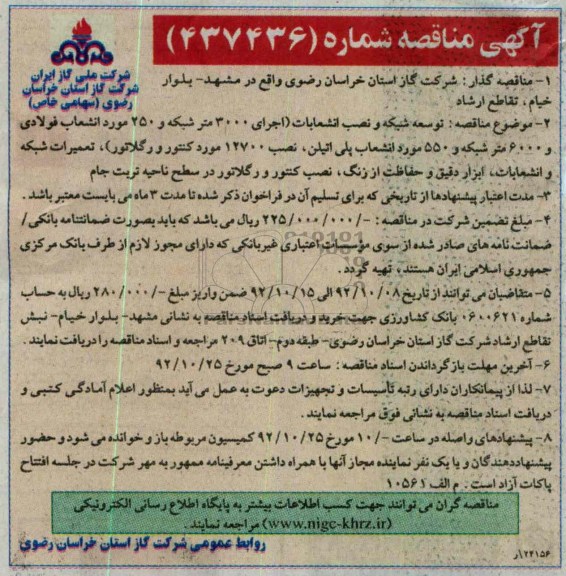 آگهی مناقصه شماره (۴۳۷۴۳۶)
شرکت ملی گاز ایران
شرکت گاز استان خراسان
رضوی (سهامی خاص)
۱- مناقصه گذار: شرکت گاز استان خراسان رضوی واقع در مشهد- بلوار
خیام، تقاطع ارشاد
۲- موضوع مناقصه: توسعه شبکه و نصب انشعابات (اجرای ۳۰۰۰ متر شبکه و ۲۵۰ مورد انشعاب فولادی
و ۶۰۰۰ متر شبکه و ۵۵۰ مورد انشعاب پلی اتیلن، نصب ۱۲۷۰۰ مورد کنتور و رگلاتور)، تعمیرات شبکه
و انشعابات، ابزار دقیق و حفاظت از زنگ، نصب کنتور و رگلاتور در سطح ناحیه تربت جام
۳- مدت اعتبار پیشنهادها از تاریخی که برای تسلیم آن در فراخوان ذکر شده تا مدت ۳ ماه می بایست معتبر باشد.
۴- مبلغ تضمین شرکت در مناقصه: -/۲۲۵/۰۰۰/۰۰۰ ریال می باشد که باید بصورت ضمانتنامه بانکی/
ضمانت نامه های صادر شده از سوی مؤسسات اعتباری غیربانکی که دارای مجوز لازم از طرف بانک مرکزی
جمهوری اسلامی ایران هستند، تهیه گردد.
۵- متقاضیان می توانند از تاریخ ۹۲/۱۰/۰۸ الی ۹۲/۱۰/۱۵ ضمن واریز مبلغ -/۲۸۰/۰۰۰ ریال به حساب
شماره ۰۶۰۰۶۲۱ بانک کشاورزی جهت خرید و دریافت اسناد مناقصه به نشانی مشهد- بلوار خیام- نبش
تقاطع ارشاد شرکت گاز استان خراسان رضوی- طبقه دوم- اتاق ۲۰۹ مراجعه و اسناد مناقصه را دریافت نمایند.
۶- آخرین مهلت بازگرداندن اسناد مناقصه: ساعت ۹ صبح مورخ ۹۲/۱۰/۲۵
۷- لذا از پیمانکاران دارای رتبه تأسیسات و تجهیزات دعوت به عمل می آید بمنظور اعلام آمادگی کتبی و
دریافت اسناد مناقصه به نشانی فوق مراجعه نمایند.
۸- پیشنهادهای واصله در ساعت -/۱۰ مورخ ۹۲/۱۰/۲۵ کمیسیون مربوطه باز و خوانده می شود و حضور
پیشنهاددهندگان و یا یک نفر نماینده مجاز آنها با همراه داشتن معرفینامه ممهور به مهر شرکت در جلسه افتتاح
پاکات آزاد است. م الف ۱۰۵۶۱
مناقصه گران می توانند جهت کسب اطلاعات بیشتر به پایگاه اطلاع رسانی الکترونیکی
(www.nigc-khrz.ir) مراجعه نمایند.
روابط عمومی شرکت گاز استان خراسان رضوی
۲۴۱۵۶/ر